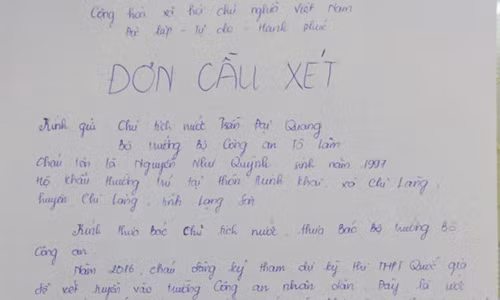 Cộng hòa xã hội chủ nghĩa Việt Nam
Độc lập - Tự do - Hạnh phúc
ĐƠN CẦU XÉT
Kính gửi Chủ tịch nước Trần Đại Quang
Bộ trưởng Bộ Công an Tô Lâm
Cháu tên là Nguyễn Như Quỳnh sinh năm 1997
Hộ khẩu thường trú tại thôn Minh Khai, xã Chi Lăng,
huyện Chi Lăng, tỉnh Lạng Sơn
Kính thưa bác Chủ tịch nước, thưa Bác Bộ trưởng Bộ
Công an
Năm 2016, cháu đăng ký tham dự kỳ thi THPT Quốc gia
để xét tuyển vào trường Công an nhân dân. Đây là ước